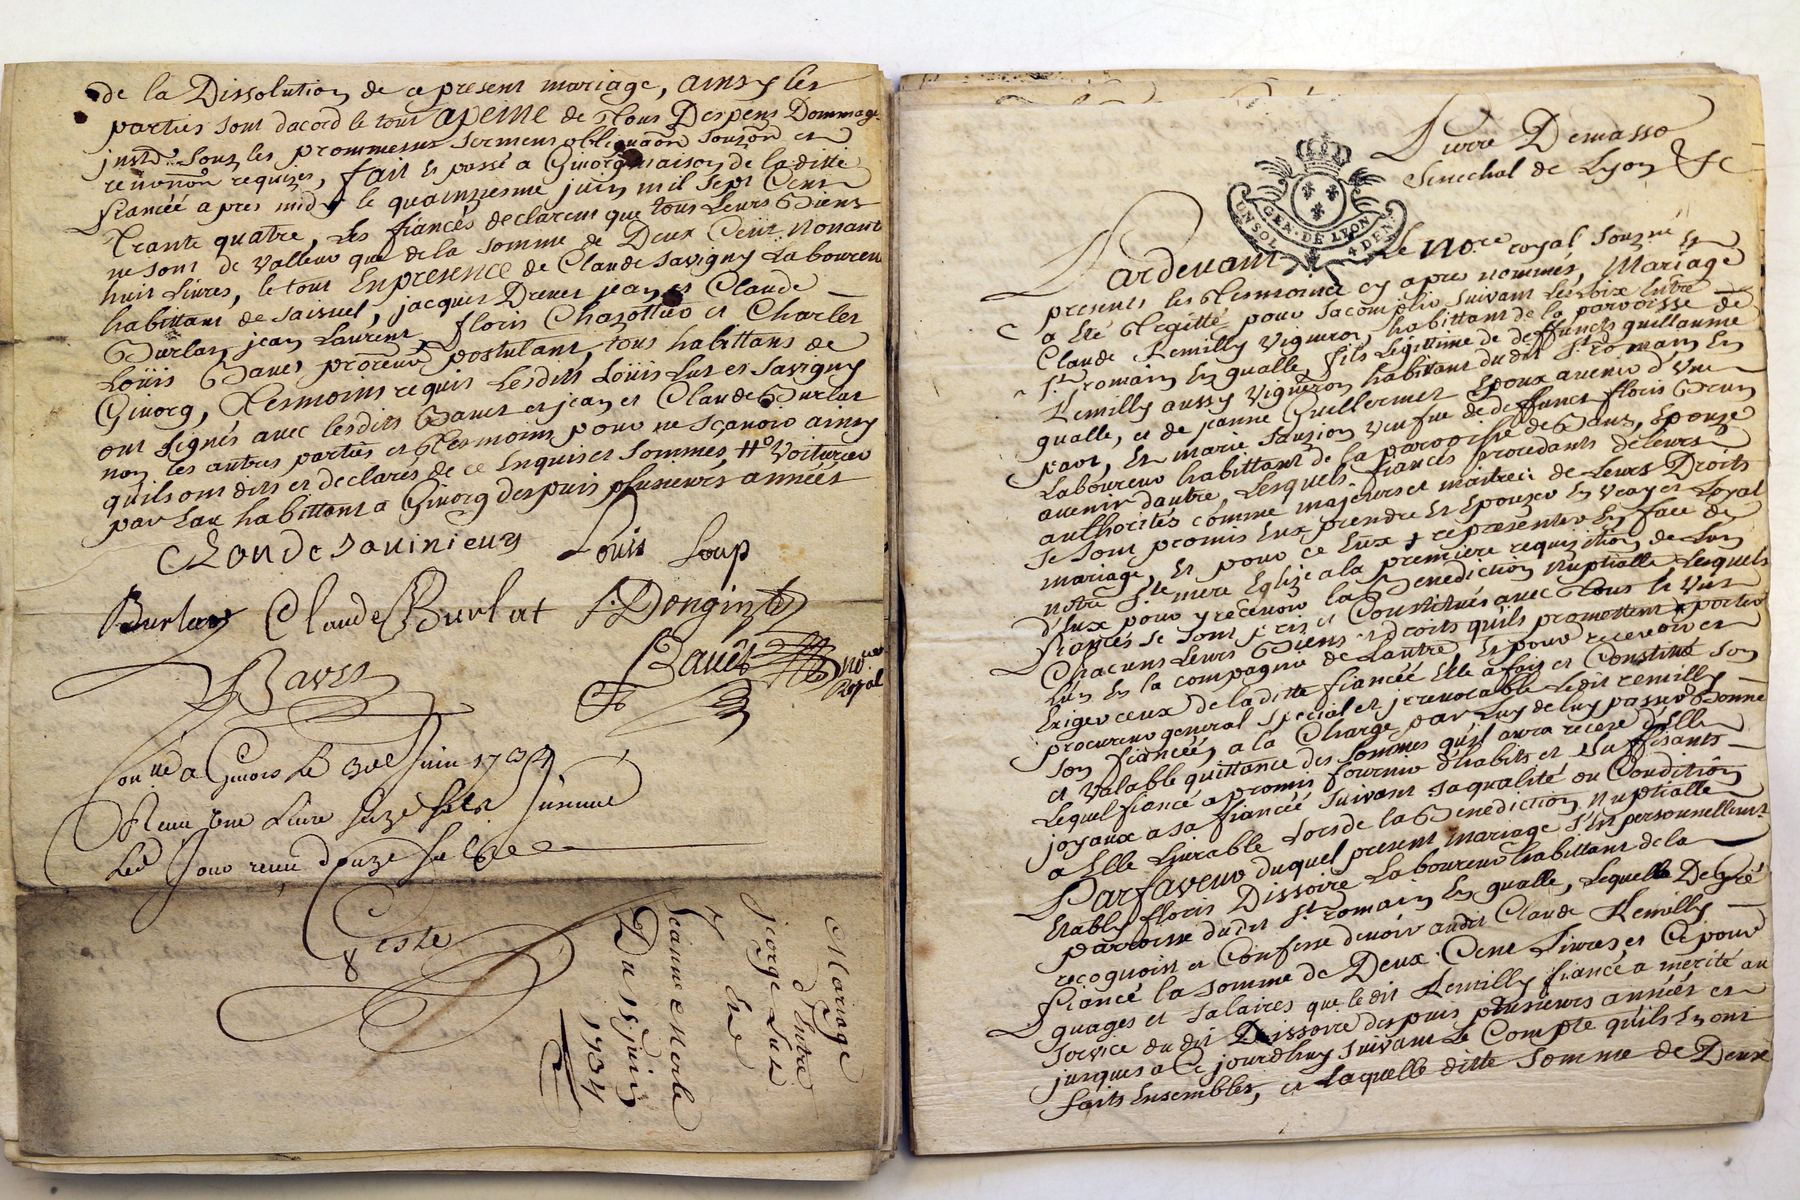 de la Dissolution de ce present mariage, ainsy les
parties sont dacord le tout apeine de tous Despens Dommage
justd. souz les prommesses sermens obligaõn souzõn et
renonõn requizes, fait et passé a Givorg maison de laditte
fiancée apres midy le quainziesme juin mil sept Cent
Trante quatre, les fiancés declarent que tous leurs Biens
ne sont de valleur que de la somme de Deux Cent Nonant
huit Livres, le tout En presence de Claude Savigny Laboureur
habittant de jacques Drevet jean et Claude
Burlat, jean Laurent, floris Chazottier et Charles
Loüis Bavet procureur postulant, tous habittans de
Givorg, Tesmoins requis Lesdits Loüis Lut et Savigny
ont signés avec lesdits Bavet et jean et Claude Burlat
non les autres parties et tesmoins pour ne sçavoir ainsy
quils ont dits et declarés de ce Enquis et sommés, Voiturier
par Eau habittant a Givorg despuis plusieurs années
Claude Sauinieux Louis Loup
Burlat Claude Burlat Donginte
Bavet Bavet nore
Royal
Conllé a Givors le Juin 1734
Receu une Livre saize sols
Led Jour receu douze sols
Geste
Mariage
d'Entre
george Lut
Et
Jeanne Merle
Du 15 juin
1734
Pierre Demasso
Senechal de Lyon &c
UN SOL GEN. DE LYON 4 DEN.
Pardevant Le nore royal souzné Et
presents les tesmoins cy apres nommés, Mariage
a été traitté pour sacomplir suivant les loix Entre
Claude Remilly vigneron habittant de la parroisse de
St. romain En gualle, fils Legittime de deffuncts guillaume
Remilly aussy vigneron habittant dudit St. romain En
gualle, et de jeanne Guillermet Epoux avenir d'Une
part, Et marie Sauzion veufue de deffunct floris Brun
Laboureur habittant de la parroisse de Bans, Epouze
avenir dautre, Lesquels fiancés procedants de leurs
authorités comme majeurs et maitres de Leurs Droits
se sont promis Eux prendre Et Epouzer En vray et Loyal
mariage, Et pour ce Eux representer En face de
notre Ste. mere Eglize a la premiere requisition de Lun
d'Eux pour y recevoir la Benediction Nuptialle Lesquels
fiancés se sont pris et Constitués avec tous et Uns
Chacuns Leurs Biens et droits quils promettent porter
lun En la compagnie de Lautre, Et pour recevoir et
Exiger ceux de laditte fiancée Elle a fait et Constitué son
procureur general special et jrrevocable Ledit remilly
son fiancée, a la Charge par Luy de luy passer Bonne
et valable quittance des sommes qu'il aura receve d'Elle
Lequel fiancé a promis fournir d'habits et suffisants
joyaux a sa fiancée suivant sa qualité ou Condition
a Elle Livrable Lors de la Benediction Nuptialle
Parfaveur duquel present mariage S'Est personnellemt.
Etably floris Dissoire Laboureur habittant de la
parroisse dudit St. romain En qualle, Lequel De gré
recognoist et Confesse devoir audit Claude Remilly
fiancé la somme de Deux Cent Livres et Ce pour
guages et salaires que ledit Remilly fiancé a merité au
service dudit Dissoire despuis plusieurs années et
jusques a Ce jourdhuy suivant Le Compte quils En ont
faits Ensembles, et Laquelle ditte somme de Deux